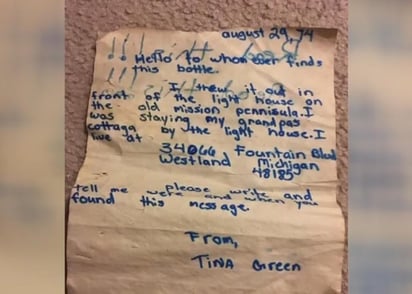 august 29, 74
!!! Hello to whom ever finds
this bottle.
I threw it out in
front of the light house on
the old mission penninsula. I
was staying my grandpas
cottage by the light house. I
live at
34066 Fountain Blvd
Westland Michigan
48185
please write and
tell me were and when you
found this message.
From,
Tina Green